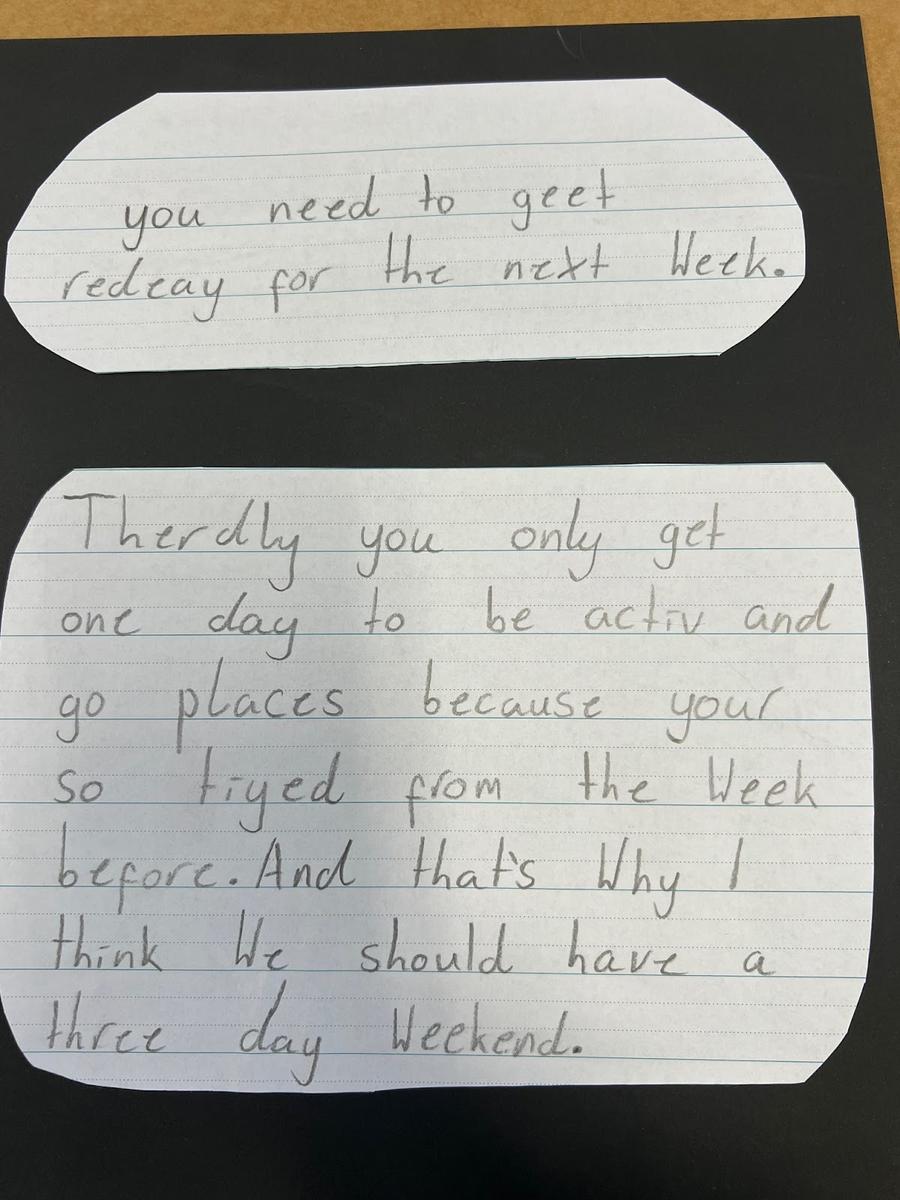 you need to geet
redeay for the next Week.
Therdly you only get
one day to be activ and
go places because your
so tiyed from the Week
before. And that's Why I
think We should have a
three day Weekend.